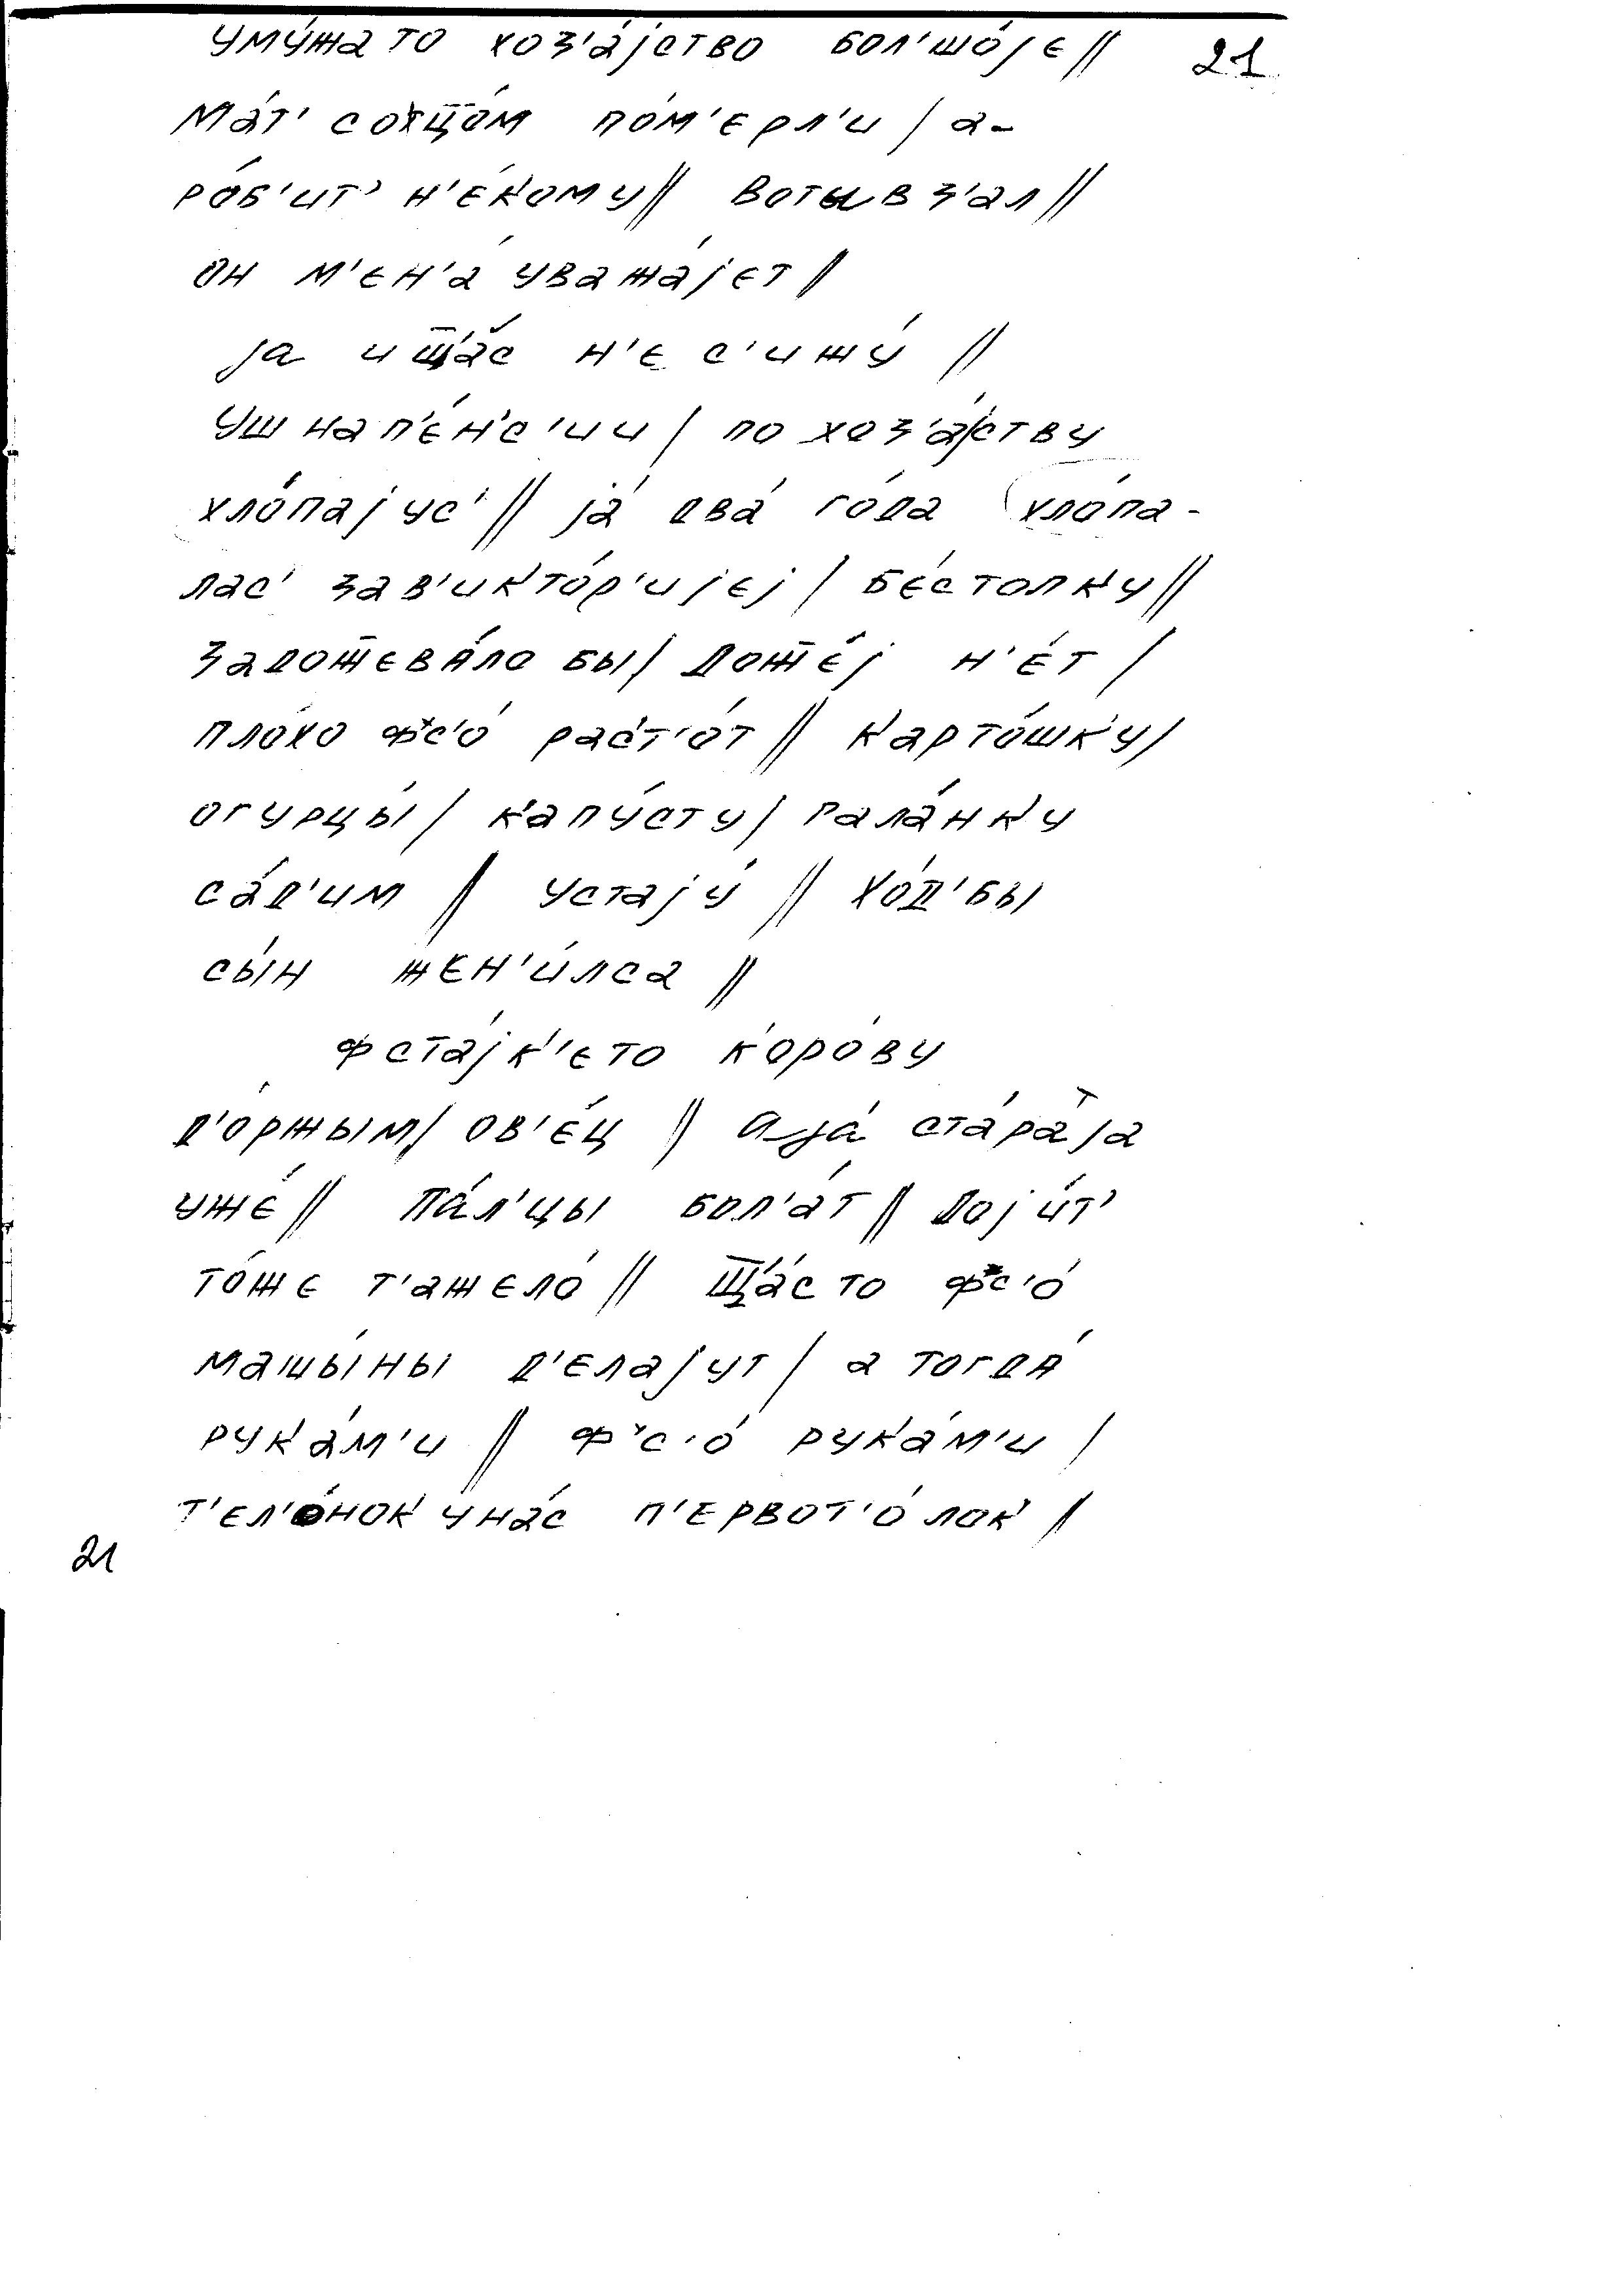 уму́жато хоз'а́јство бол'шо́јє// 21
ма́т' сотц̄о́м по́м'єрл'и / а-
ро́б'ит' н'є́кому// вотывз'ал//
он м'єн'а́ уважа́јєт//
ја и щ̄'а́с н'є с'ижу́ //
уш нап'є́н'с'ии / по хоз'а́јству
хло́пајус'// ја́ два́ го́да хло́па-
лас' зав'икто́р'ијєј / бє́столку//
задож̄єва́ло бы/ дож̄є́ј н'є́т /
пло́хо фс'о́ раст'о́т // карто́шку/
огурцы́/ капу́сту/ гала́нку
са́д'им // устају́ // хо́д'бы
сы́н жєн'и́лса //
фста́јк'єто коро́ву
д'о́ржым/ ов'є́ц // а ја́ ста́раја
ужє́// па́л'цы бол'а́т// доји́т'
то́жє т'ажєло́// щ̄'а́с то фс'о́
машы́ны д'є́лајут/ а тогда́
рука́м'и // фс'о́ рука́м'и /
т'єл'о́нок уна́с п'єрвот'о́лок //
21